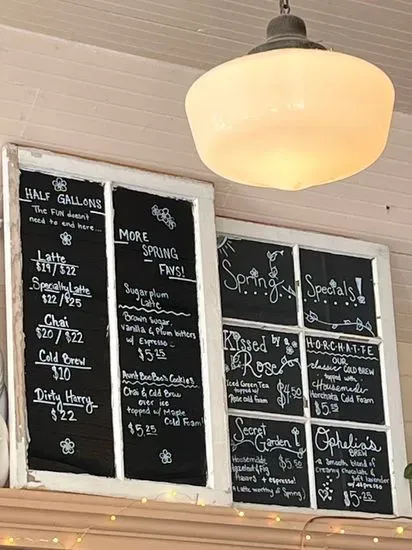 HALF GALLONS
The FUN doesn't
need to end here...
Latte
$19/$22
Specialty Latte
$22/$25
Chai
$20/$22
Cold Brew
$10
Dirty Harry
$22
MORE
SPRING
FNS!
Sugarplum
Latte
Brown Sugar
Vanilla & Plum bitters
w/ Espresso
$5.25
Aunt BooBoo's Cookies
Chai & Cold Brew
over ice
topped w/ Maple
Cold Foam!
$5.25
Spring
Specials!
Kissed by a
Rose
Iced Green Tea
topped w/
Rose cold foam
$4.50
HORCHATE
OUR
classic COLD BREW
topped with
Housemade
Horchata Cold Foam
$5.50
Secret Garden
Housemade
Hazelnut & Fig
+ espresso
(Latte worthy of Spring)
$5.50
Ophelia's
BREW
a smooth blend of
creamy chocolate &
soft lavender
w/ espresso
$5.25